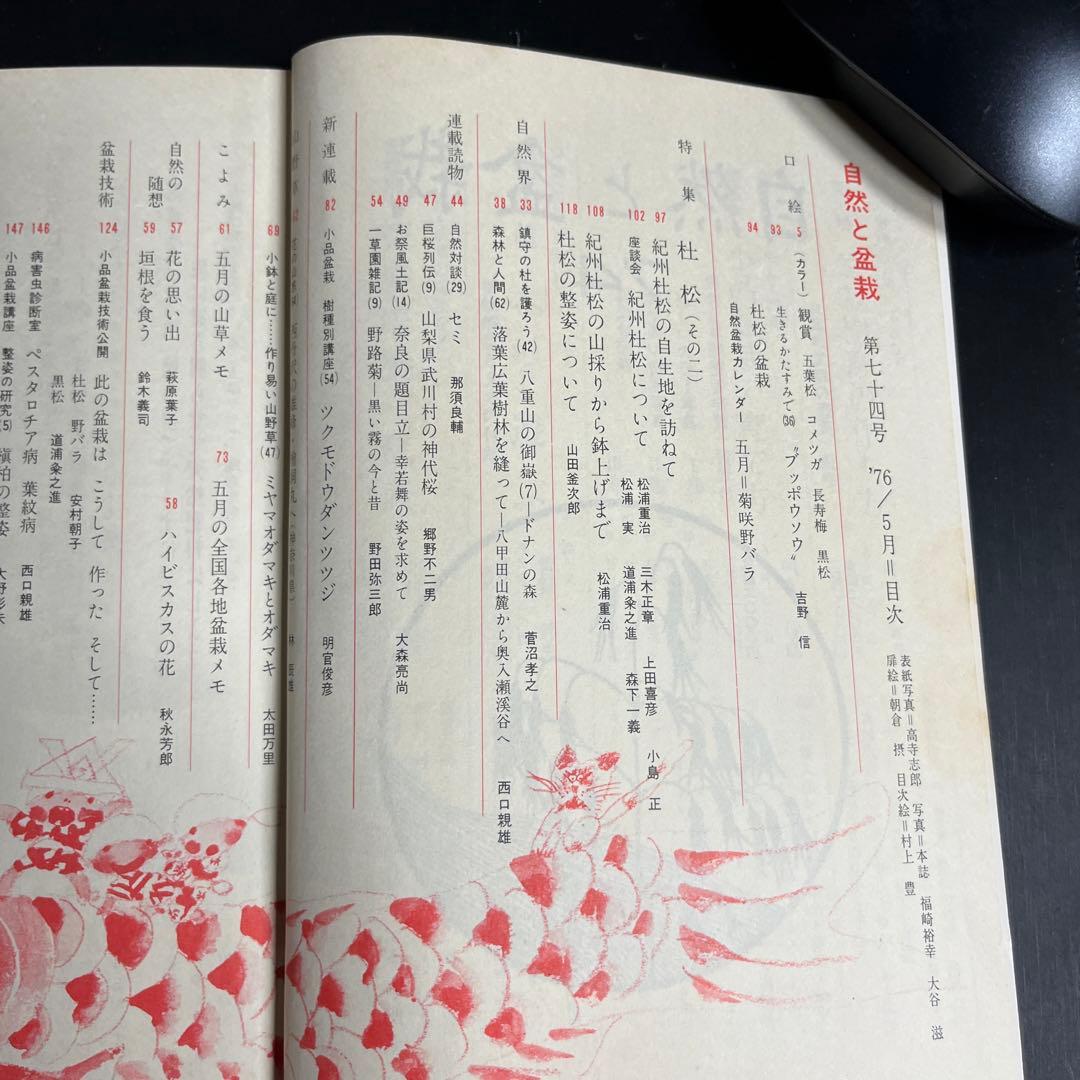 自然と盆栽 第七十四号 '76／5月＝目次
表紙写真＝高寺志郎 写真＝本誌 福崎裕幸 大谷 滋
扉絵＝朝倉 摂 目次絵＝村上 豊
口絵
5 （カラー）観賞 五葉松 コメツガ 長寿梅 黒松
93 生きるかたすみで(36) “ブッポウソウ” 吉野 信
杜松の盆栽
94 自然盆栽カレンダー 五月＝菊咲野バラ
特集 杜松（その二）
97 紀州杜松の自生地を訪ねて 松浦重治 三木正章 上田喜彦 小島 正
102 座談会 紀州杜松について 松浦 実 道浦粂之進 森下一義
108 紀州杜松の山採りから鉢上げまで 松浦重治
118 杜松の整姿について 山田釜次郎
自然界
33 鎮守の杜を護ろう(42) 八重山の御嶽(7)―ドナンの森 菅沼孝之
38 森林と人間(62) 落葉広葉樹林を縫って―八甲田山麓から奥入瀬渓谷へ 西口親雄
連載読物
44 自然対談(29) セミ 那須良輔
47 巨桜列伝(9) 山梨県武川村の神代桜 郷野不二男
49 お祭風土記(14) 奈良の題目立―幸若舞の姿を求めて 大森亮尚
54 一草園雑記(9) 野路菊―黒い霧の今と昔 野田弥三郎
新連載
82 小品盆栽 樹種別講座(54) ツクモドウダンツツジ 明官俊彦
林 辰雄
69 小鉢と庭に……作り易い山野草(47) ミヤマオダマキとオダマキ 太田万里
こよみ
61 五月の山草メモ 73 五月の全国各地盆栽メモ
自然の随想
57 花の思い出 萩原葉子 58 ハイビスカスの花 秋永芳郎
59 垣根を食う 鈴木義司
盆栽技術
124 小品盆栽技術公開 此の盆栽は こうして 作った そして……
杜松 野バラ 安村朝子
黒松 道浦粂之進
146 病害虫診断室 ペスタロチア病 葉紋病 西口親雄
147 小品盆栽講座 整姿の研究(5) 槇柏の整姿